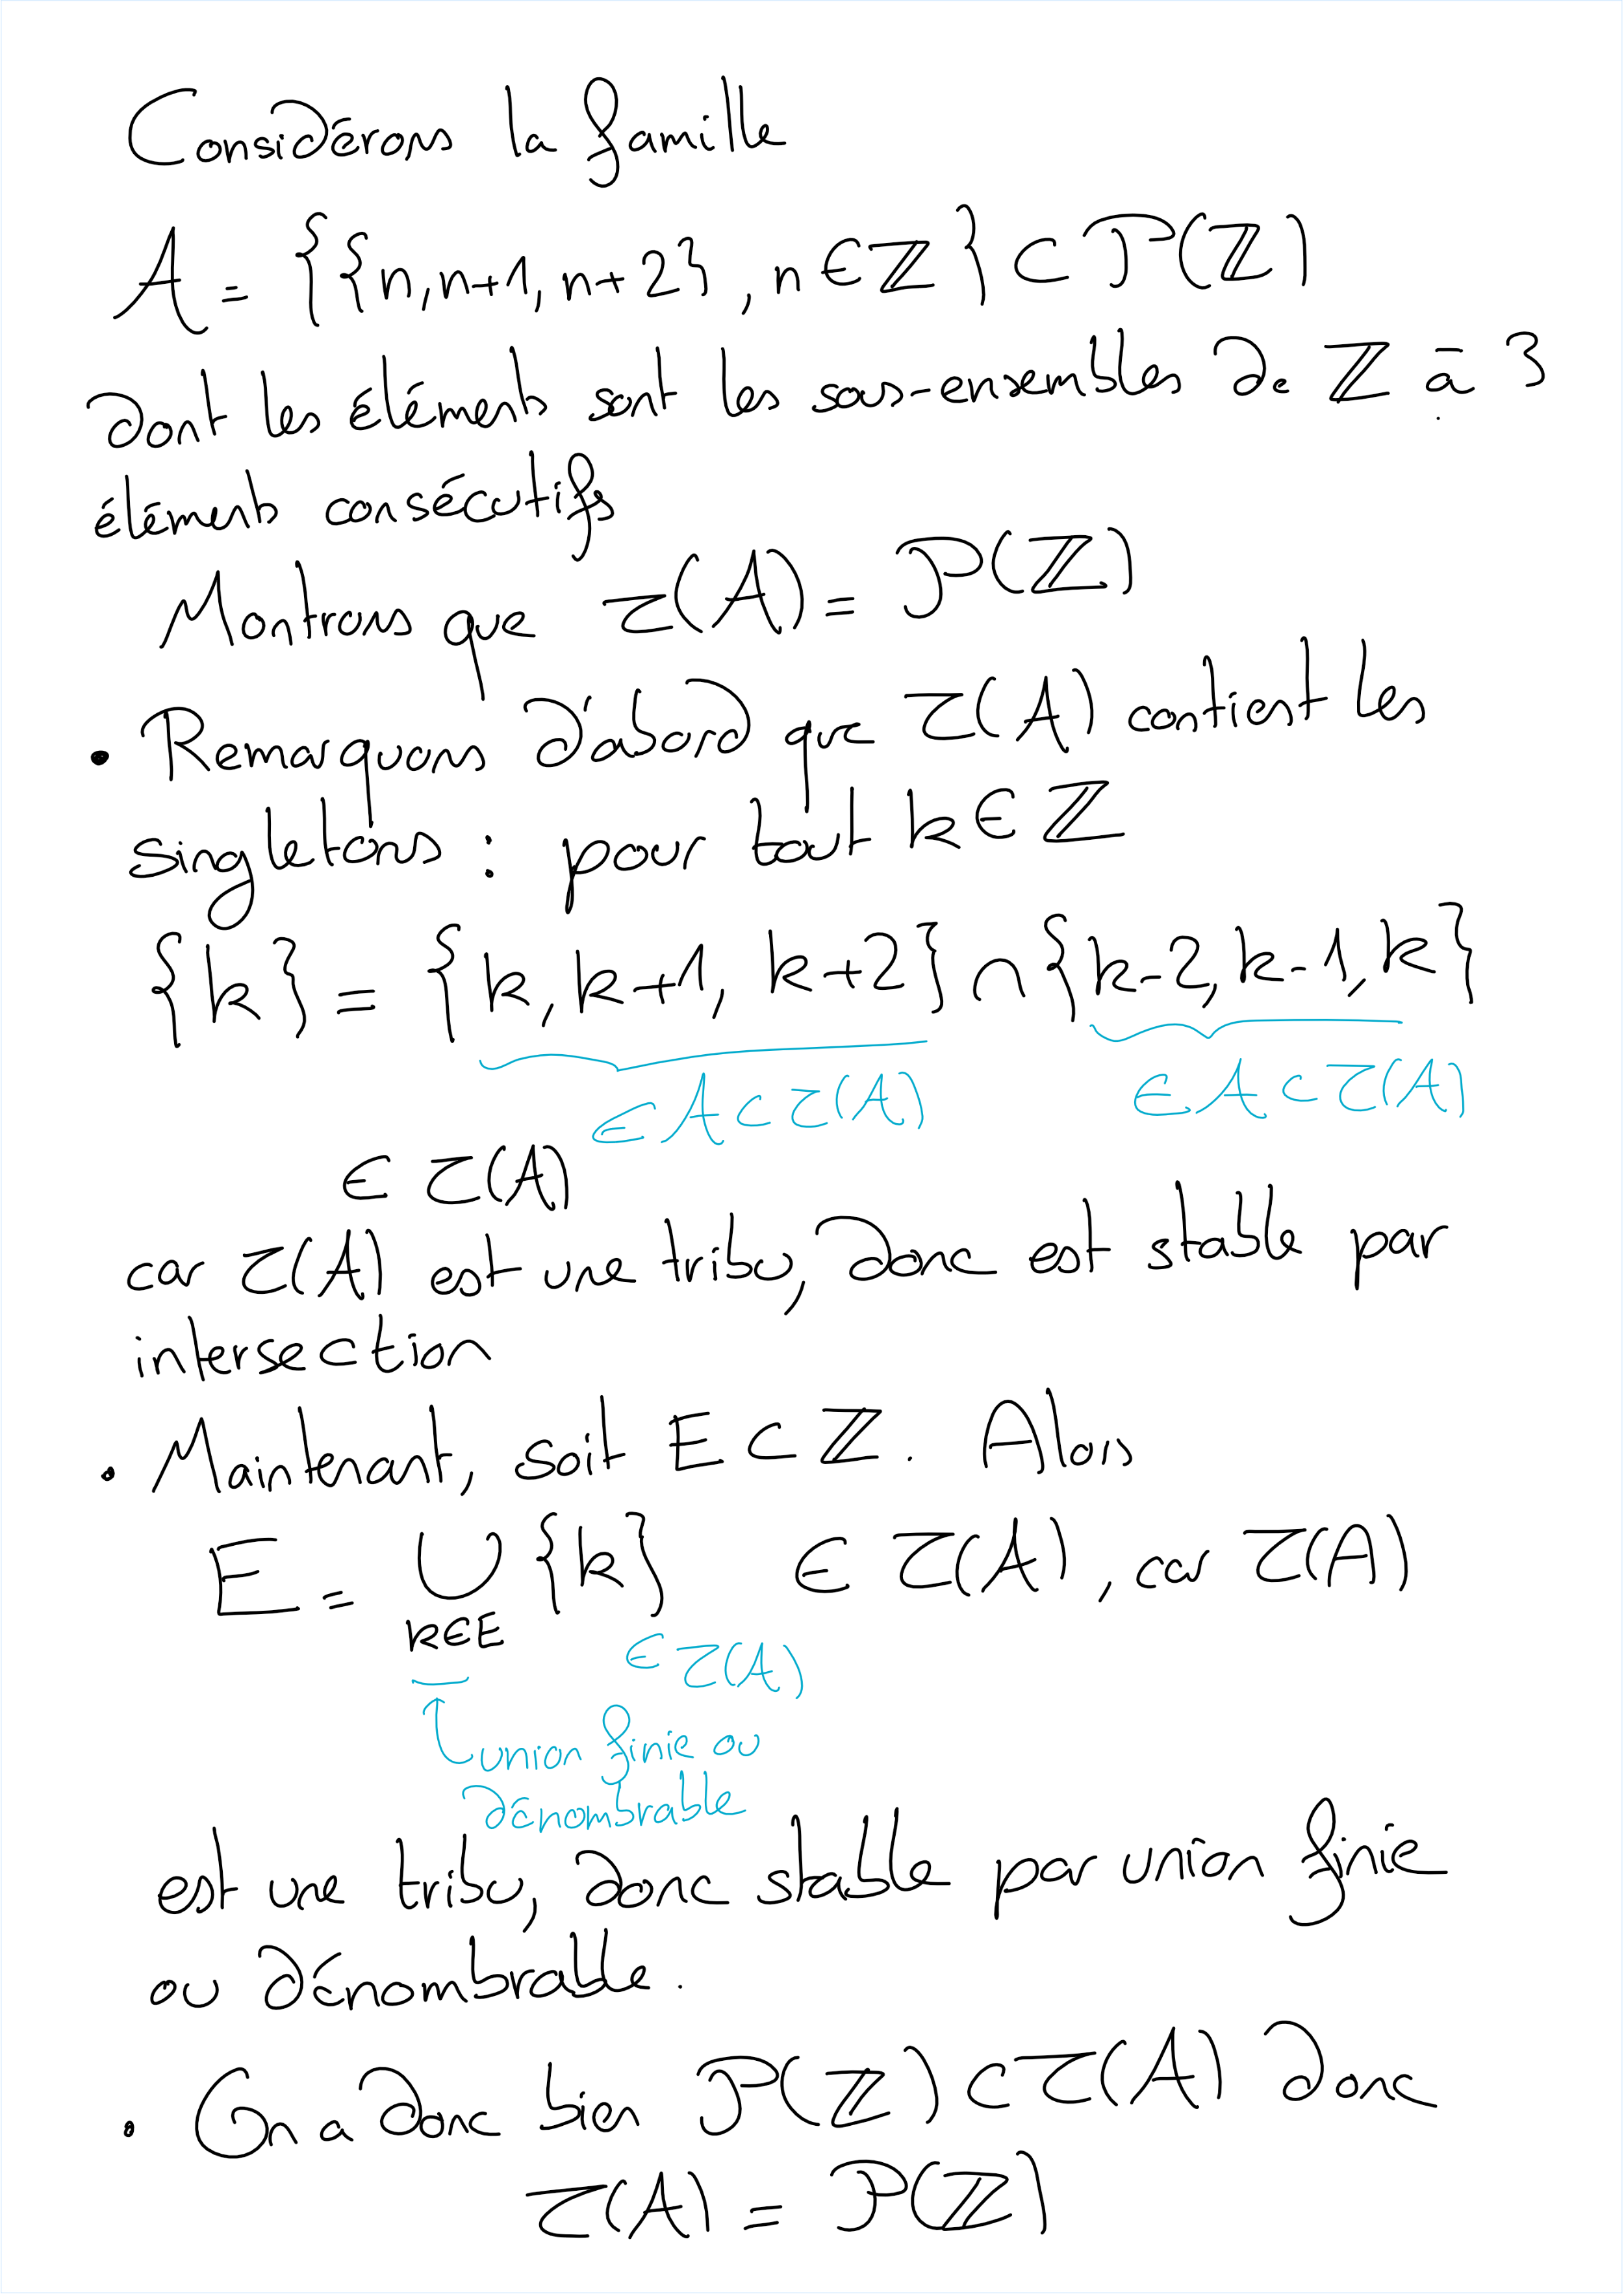 Considérons la famille
A = {{n, n+1, n+2}, n ∈ ℤ} ⊂ P(ℤ)
dont les éléments sont les sous-ensembles de ℤ à 3
éléments consécutifs
Montrons que τ(A) = P(ℤ)
• Remarquons d'abord que τ(A) contient les
singletons : pour tout k ∈ ℤ
{k} = {k, k+1, k+2} ∩ {k-2, k-1, k}
∈ A ⊂ τ(A) ∈ A ⊂ τ(A)
∈ τ(A)
car τ(A) est une tribu, donc est stable par
intersection
• Maintenant, soit E ⊂ ℤ. Alors
E = ∪ {k} ∈ τ(A), car τ(A)
k∈E
∈ τ(A)
union finie ou
dénombrable
est une tribu, donc stable par union finie
ou dénombrable.
• On a donc bien P(ℤ) ⊂ τ(A) donc
τ(A) = P(ℤ)